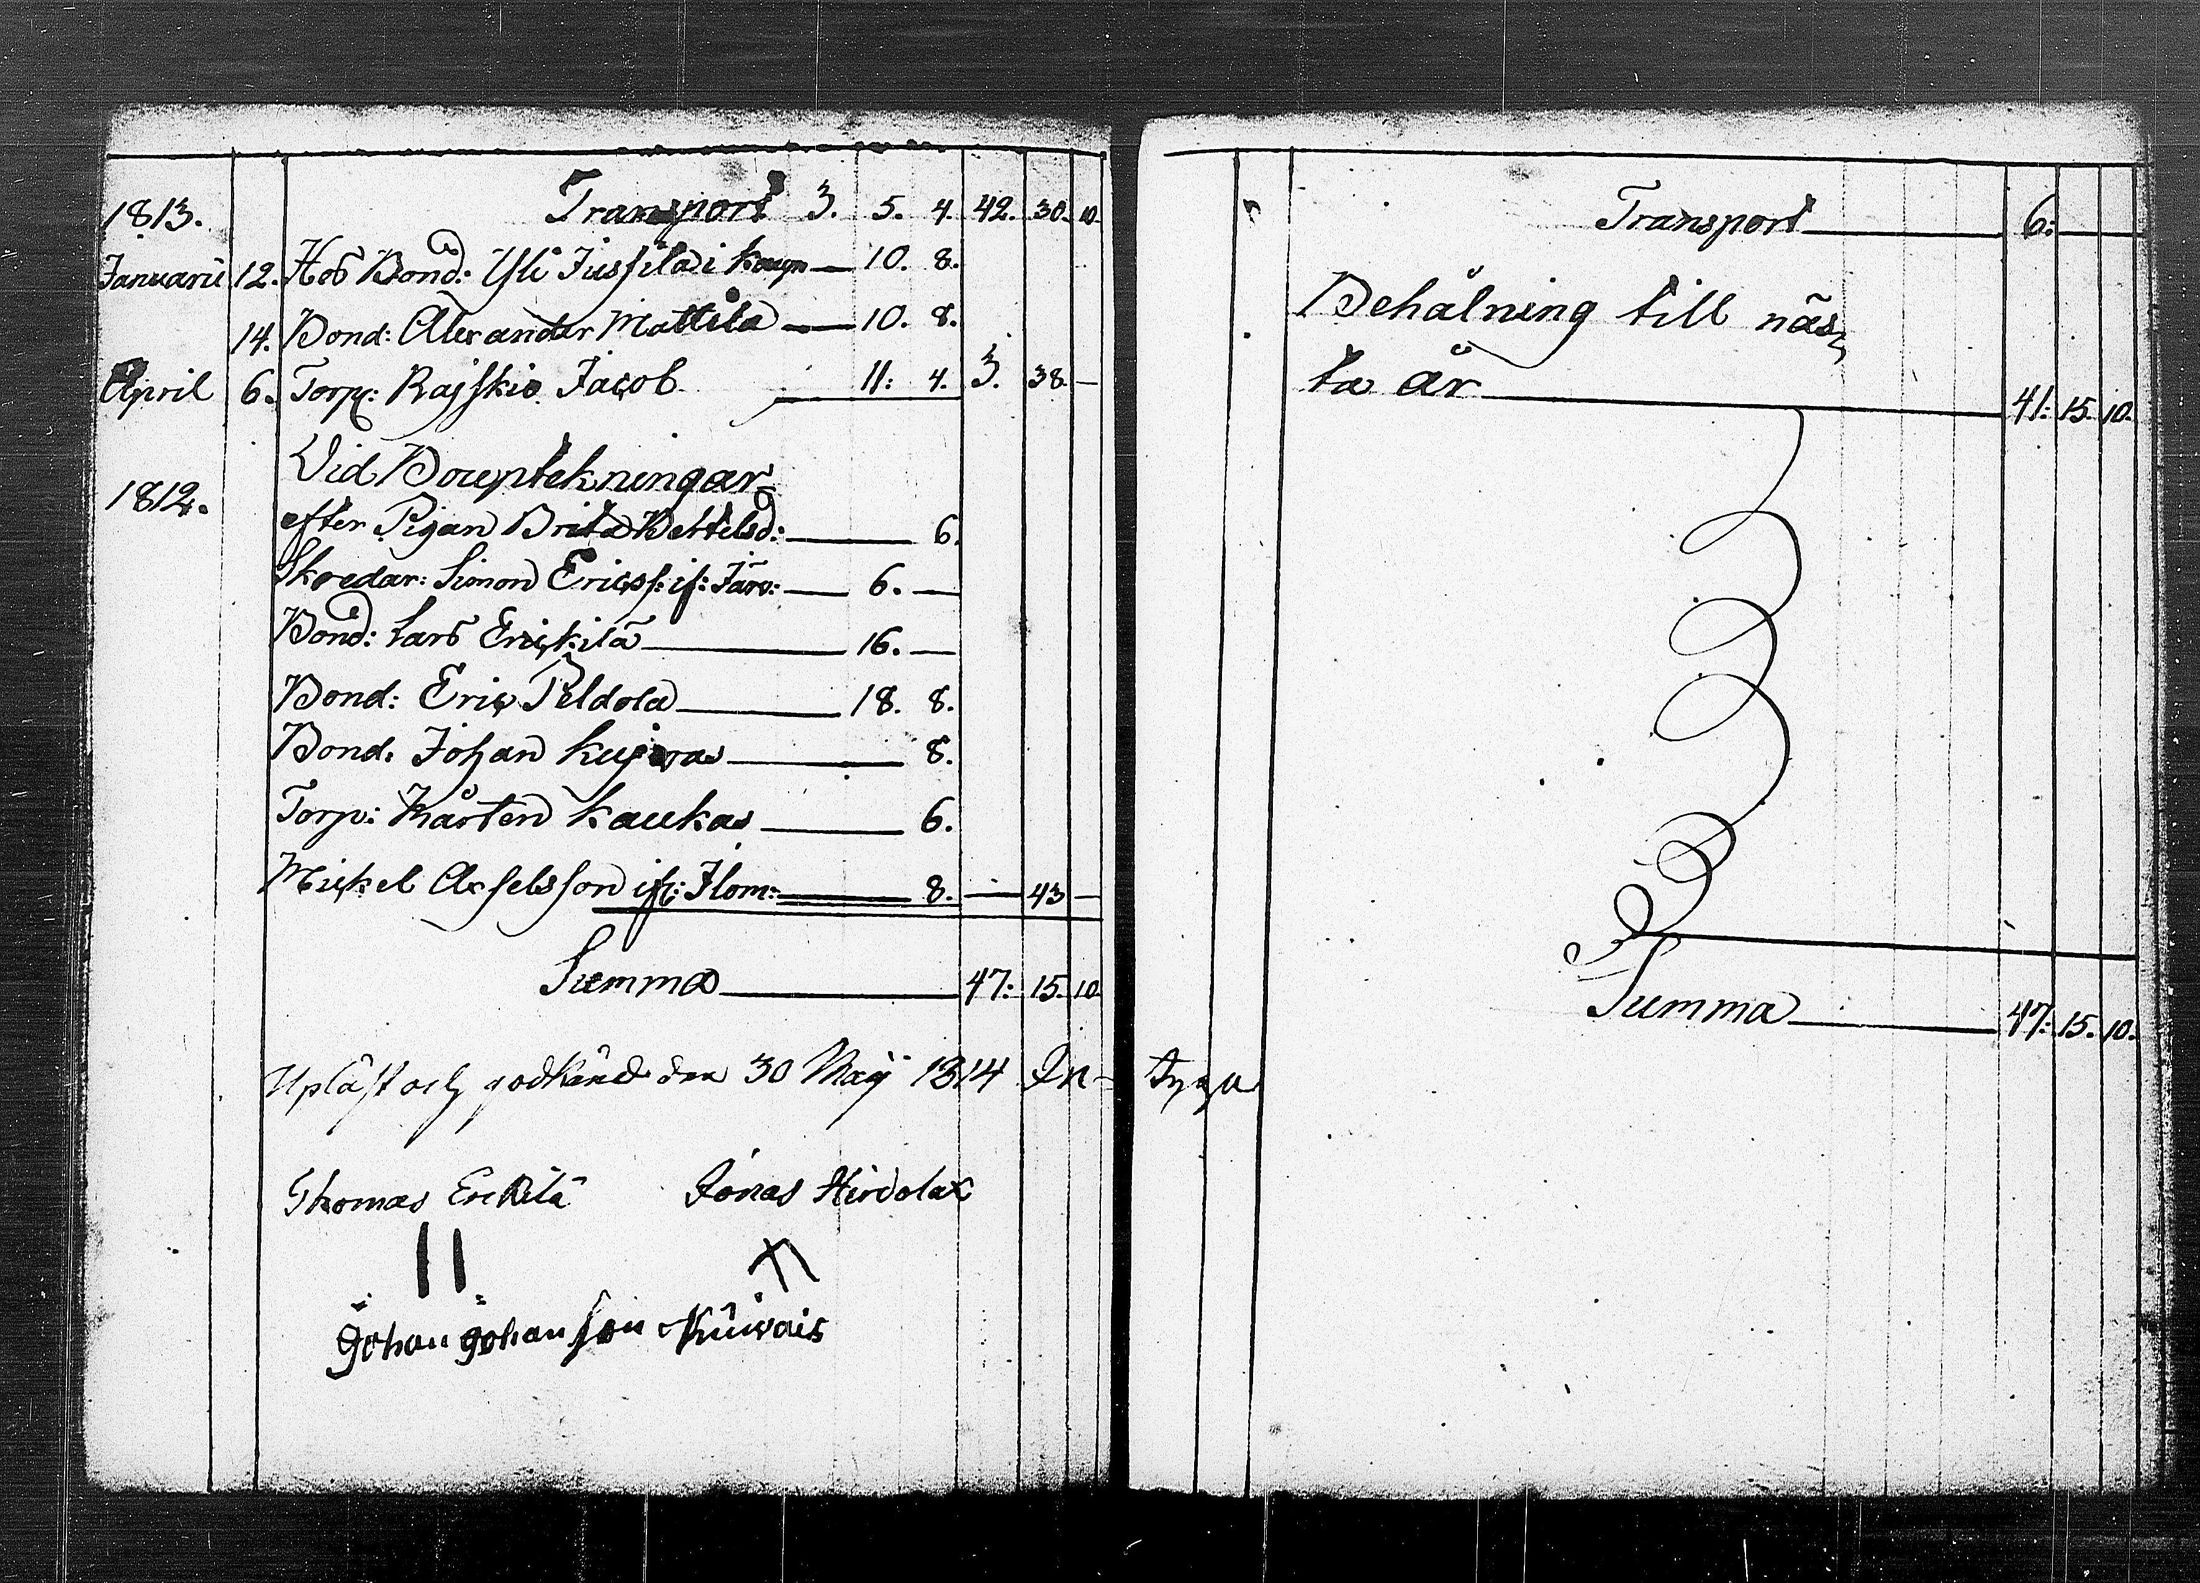 1813. Transport 3. 5. 4. 42. 30. 10.
Januarii 12. Hos Bond: Yli Jussila i 10. 8.
14. Bond: Alexander Mattila 10. 8.
April 6. Torp: Jacob 11: 4. 3. 38. —
Vid Bouptekningar
1812. efter Pigan Brita Bertelsd: 6.
Skredar: Simon Ericss: if: Järv: 6. —
Bond: Lars Erickilä 16. —
Bond: Eric Peldola 18. 8.
Bond: Johan Kujvas 8.
Torp: Mårten Kaukas 6.
Mickel Axelsson if: Ilom: 8. — 43 —
Summa 47: 15. 10.
Upläst och godkänd den 30 Maij 1814 In-
Thomas Erckilä Jonas Hirdolax
Johan Johansson Kuivais
Transport 6:
Behålning till näs
ta år 41: 15. 10.
Summa 47: 15. 10.
tyga